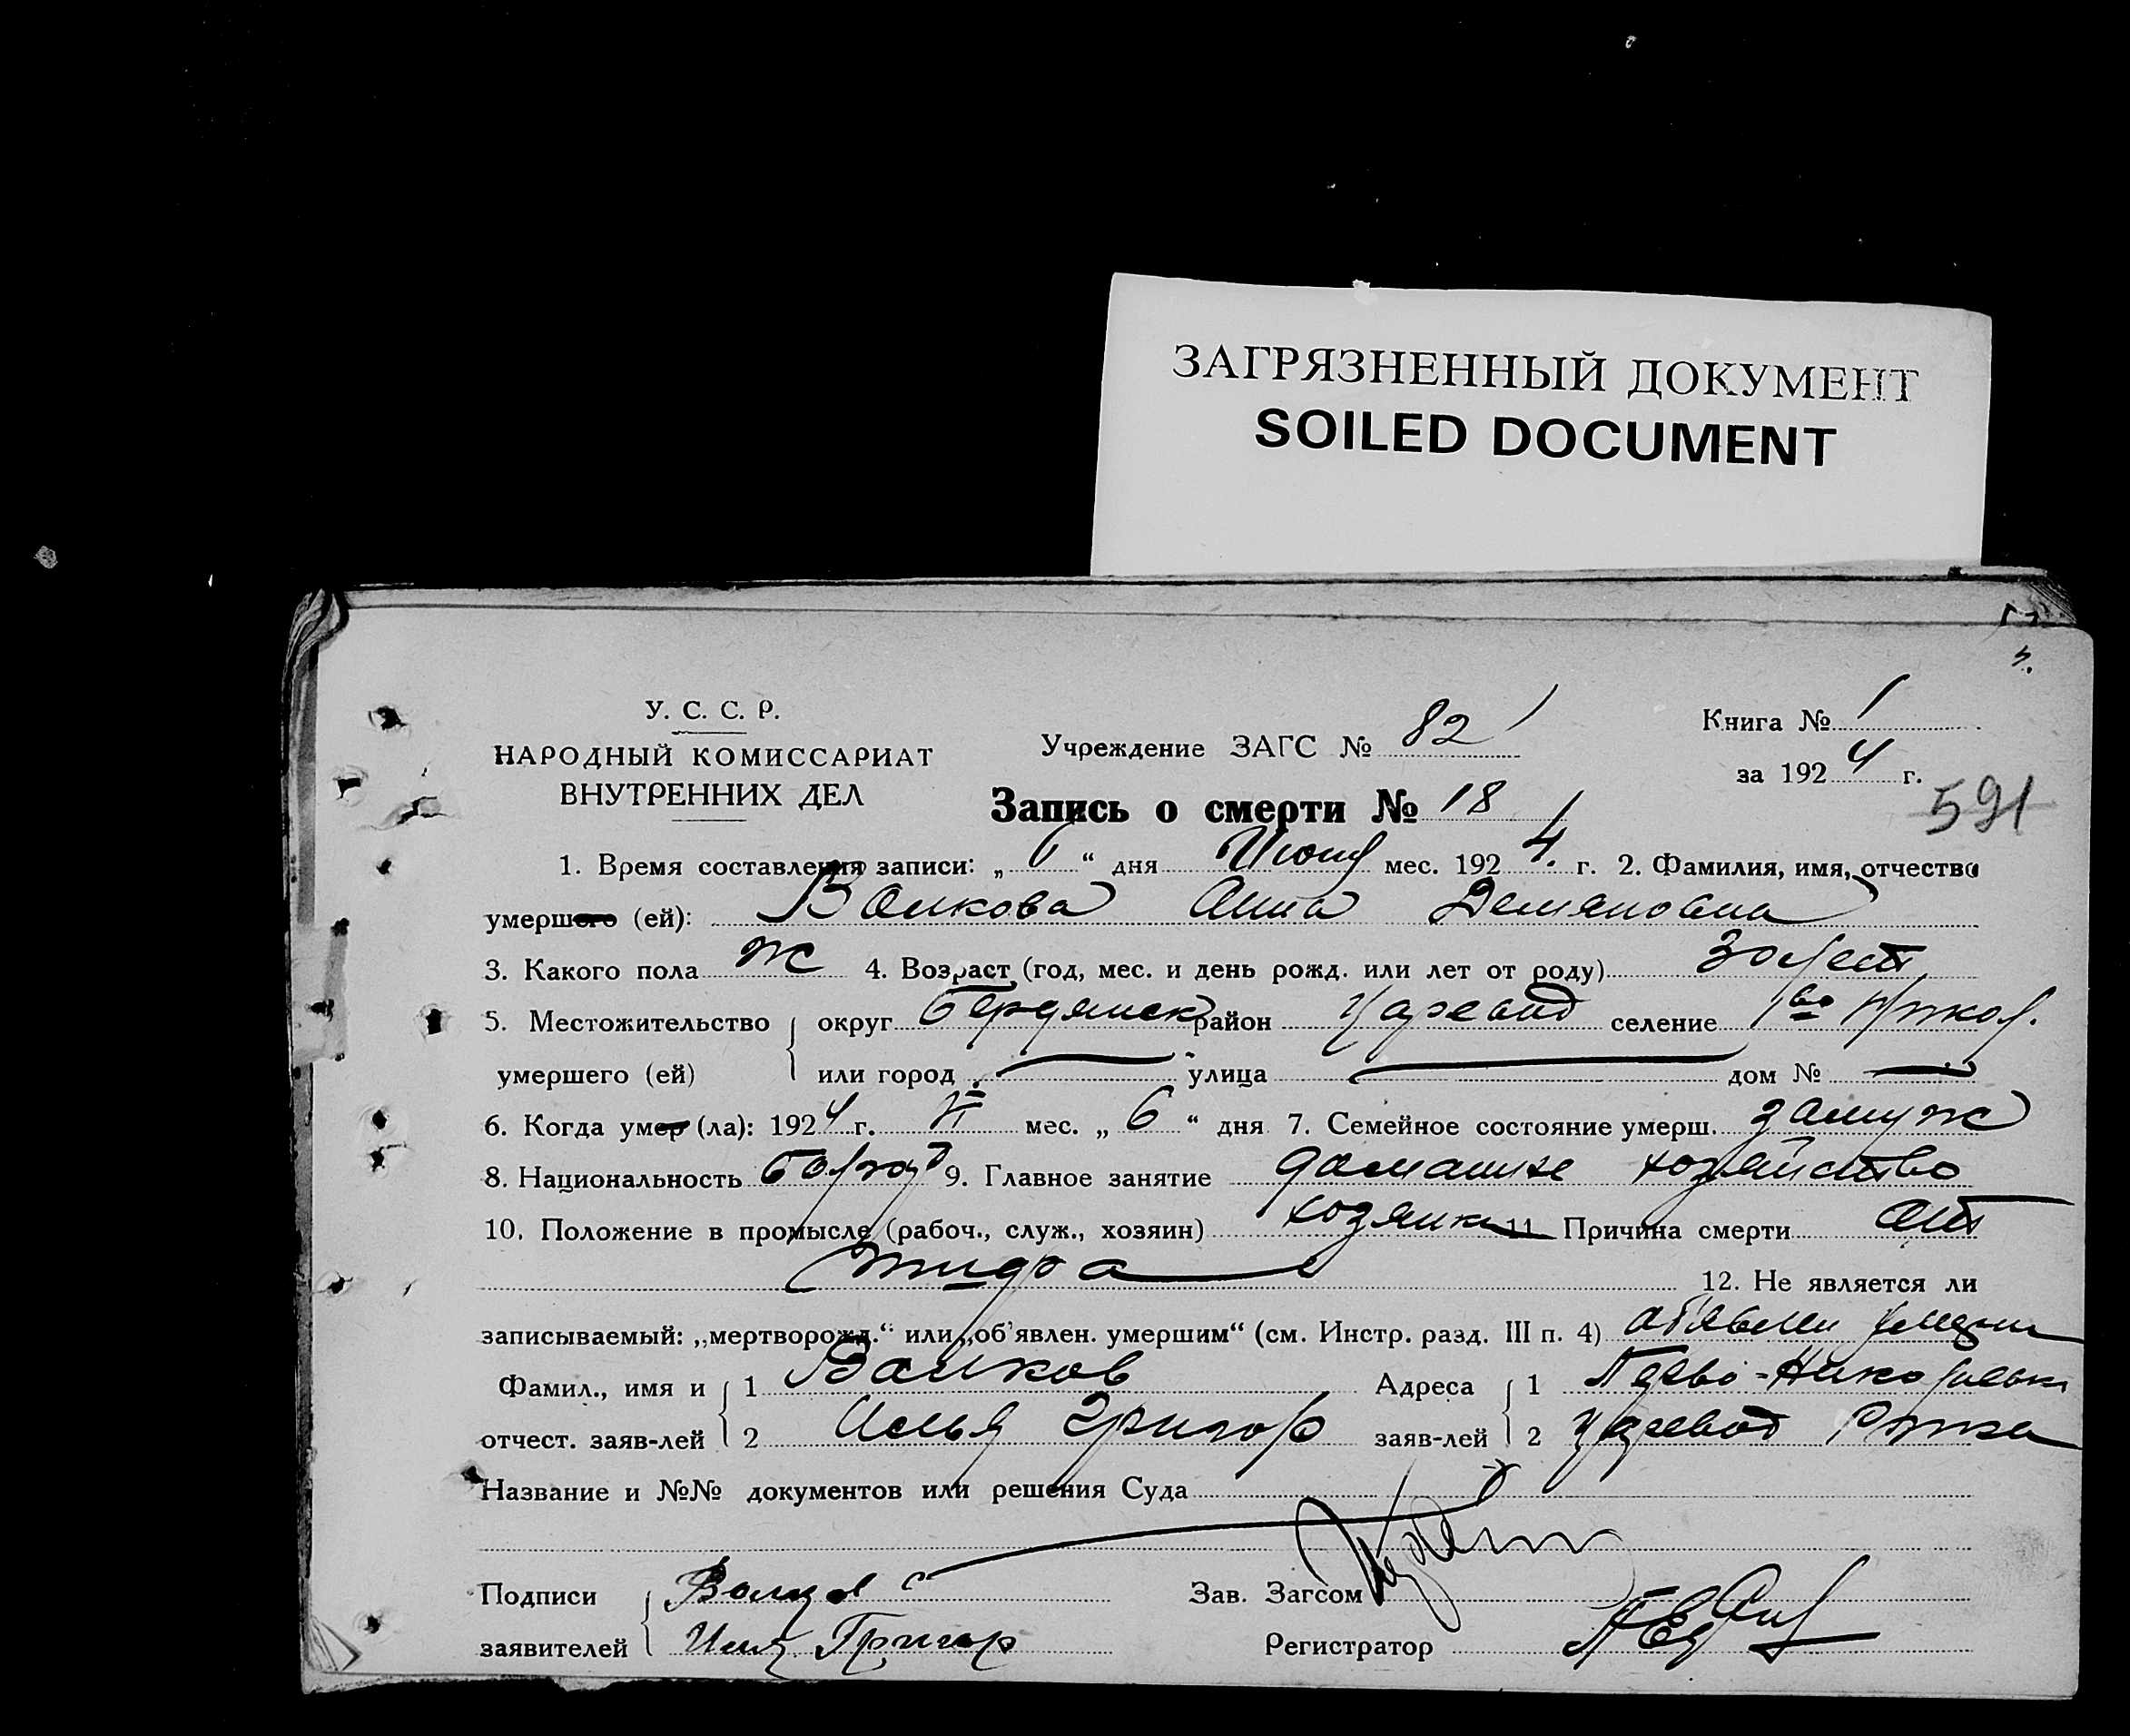 ЗАГРЯЗНЕННЫЙ ДОКУМЕНТ
SOILED DOCUMENT
У. С. С. Р.
НАРОДНЫЙ КОМИССАРИАТ
ВНУТРЕННИХ ДЕЛ
Учреждение ЗАГС № 82
Книга № 1
за 1924 г.
591
Запись о смерти № 18
1. Время составления записи: „ 6 “ дня Июня мес. 1924. г. 2. Фамилия, имя, отчество
умершего (ей): Волкова Анна Демяновна
3. Какого пола ж 4. Возраст (год, мес. и день рожд. или лет от роду) 30 лет
5. Местожительство округ Бердянск район Царевод селение 1во Никол.
умершего (ей) или город — улица — дом № —
6. Когда умер (ла): 1924 г. VI мес. „ 6 “ дня 7. Семейное состояние умерш. замуж
8. Национальность болгар 9. Главное занятие домашне хозяйство
10. Положение в промысле (рабоч., служ., хозяин) хозяика 11 Причина смерти от
тифа 12. Не является ли
записываемый: „мертворожд.“ или „об’явлен. умершим“ (см. Инстр. разд. III п. 4)
Фамил., имя и 1 Волков Адреса 1 Перво-Николаевк
отчест. заяв-лей 2 Илья Григор заяв-лей 2 Царевод
Название и №№ документов или решения Суда
Подписи Волков Зав. Загсом
заявителей Григор Регистратор